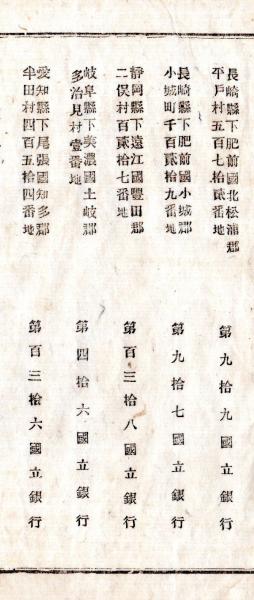 長崎縣下肥前國北松浦郡
平戶村五百七拾貳番地
第九拾九國立銀行
長崎縣下肥前國小城郡
小城町千百貳拾九番地
第九拾七國立銀行
靜岡縣下遠江國豐田郡
二俣村百貳拾七番地
第百三拾八國立銀行
岐阜縣下美濃國土岐郡
多治見村壹番地
第四拾六國立銀行
愛知縣下尾張國知多郡
半田村四百五拾四番地
第百三拾六國立銀行